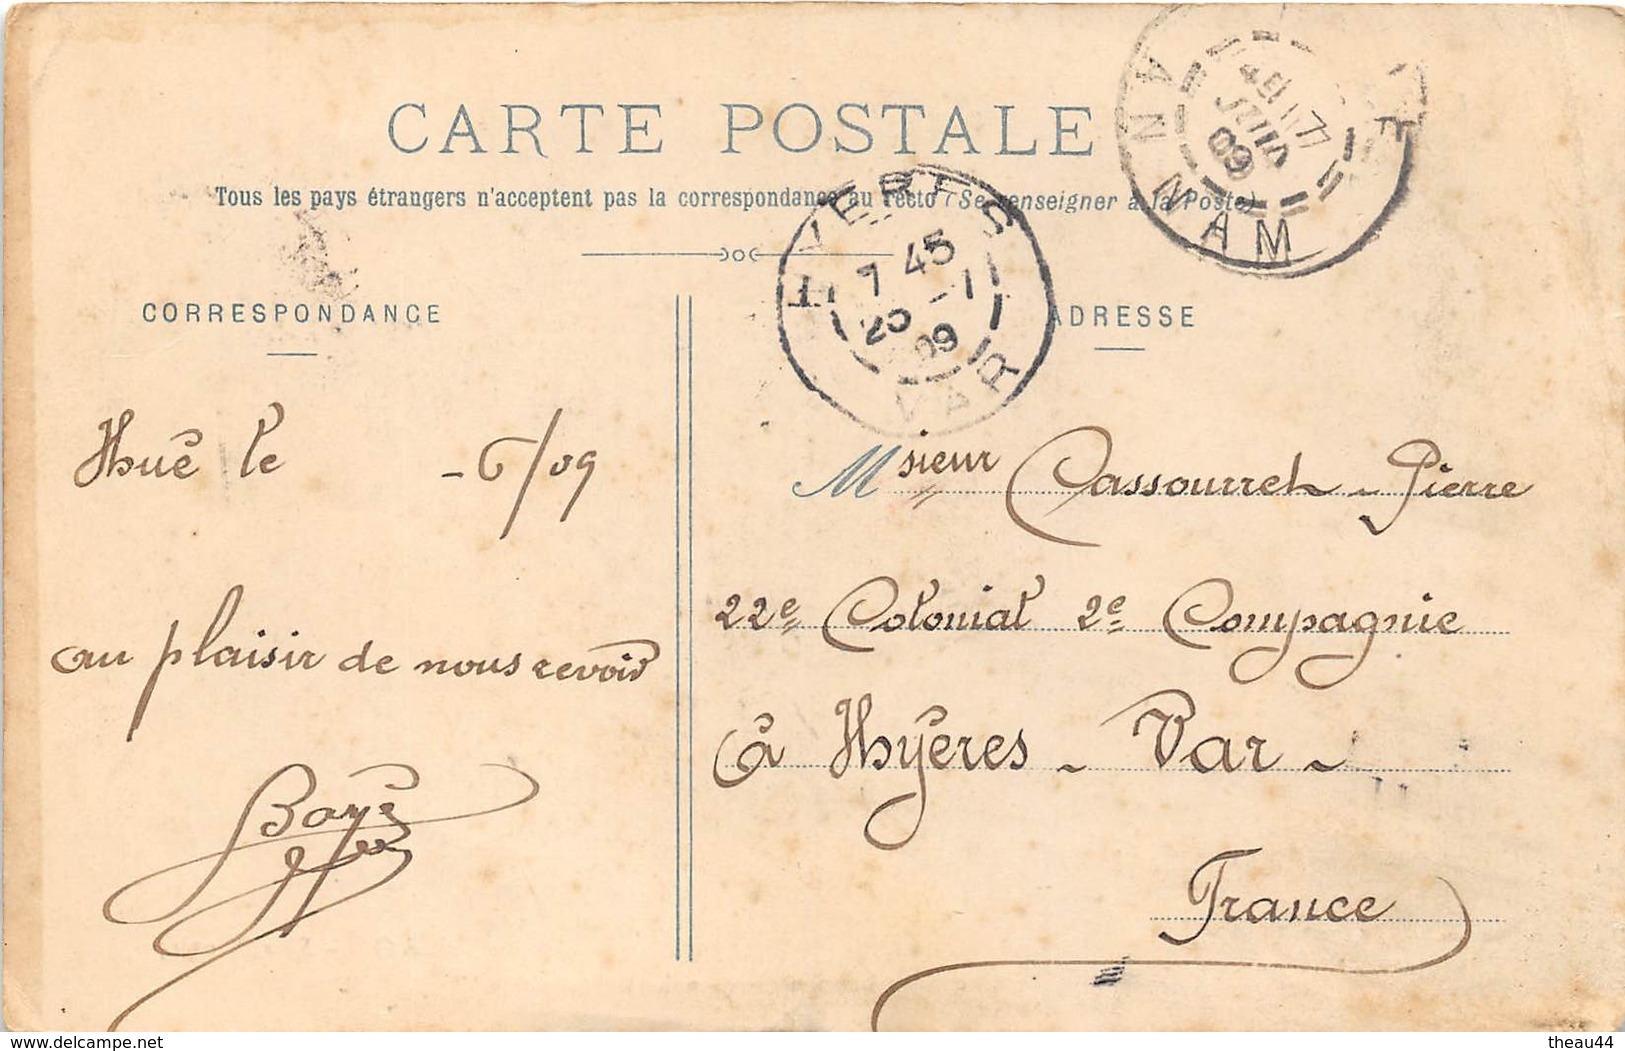 CARTE POSTALE
Tous les pays étrangers n'acceptent pas la correspondance au recto (Se renseigner à la Poste)
ANNAM
JUIN
09
HYÈRES
7 45
-7
09
VAR
CORRESPONDANCE
ADRESSE
Hué le - 6/09
au plaisir de nous revoir
Msieur Cassourret - Pierre
22e Colonial 2e Compagnie
à Hyéres - Var -
France
www.delcampe.net
theau44